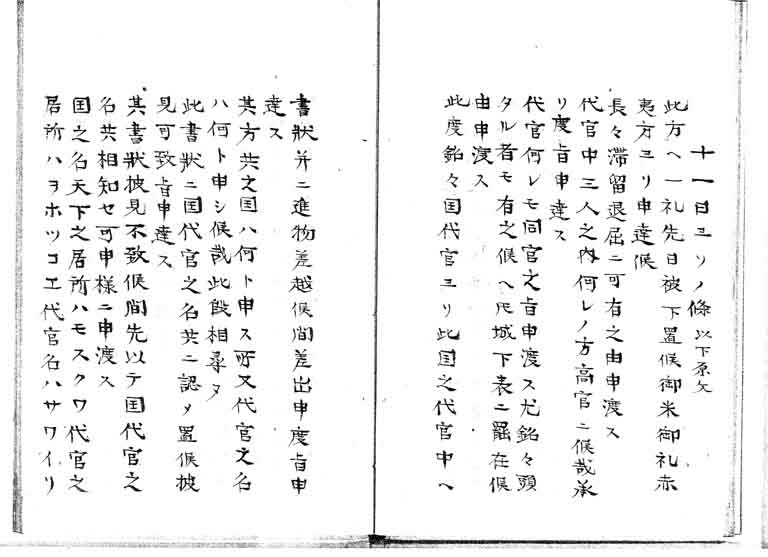 十一日ヨリノ條以下原文
此方ヘ一礼先日被下置候御米御礼赤
夷方ヨリ申達候
長々滞留退屈ニ可有之由申渡ス
代官中三人之内何レノ方高官ニ候哉承
リ度旨申達ス
代官何レモ同官之旨申渡ス尤銘々頭
タル者モ有之候ヘ𪜈城下表ニ罷在候
由申渡ス
此度銘々国代官ヨリ此国之代官中ヘ
書状并ニ進物差越候間差出申度旨申
達ス
其方共之国ハ何ト申ス所又代官之名
ハ何ト申シ候哉此段相尋ヌ
此書状ニ国代官之名共ニ認メ置候披
見可致旨申達ス
其書状披見不致候間先以テ国代官之
名共相知セ可申様ニ申渡ス
国之名天下之居所ハモスクワ代官之
居所ハヲホツコヱ代官名ハサワイリ